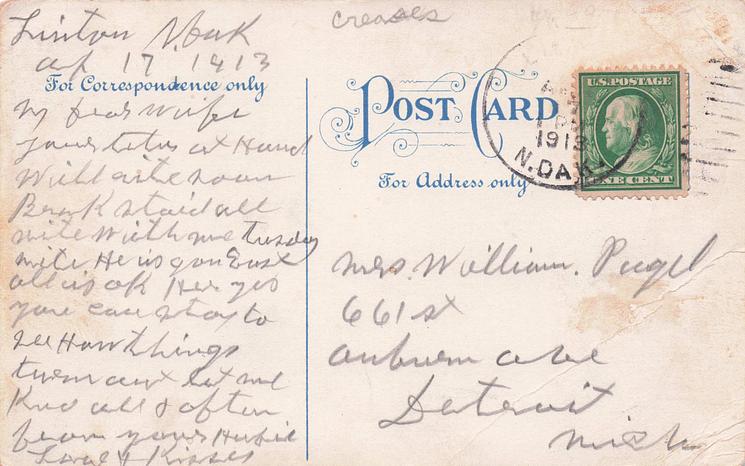 Linton N. Dak
Ap 17 1913
For Correspondence only
My Dear Wife
Yours letter at Hand
Will write soon
Staid all
nite With me Tuesday
nite He is gon East
all is ok Her yes
you can stay to
see How things
turn out let me
Kno all & often
from your Hubie
Love & Kisses
creases
POST CARD
For Address only
1913
N. DAK.
U.S. POSTAGE
ONE CENT
Mrs. William. Pugel
661 st
auburn ave
Detroit
Mich